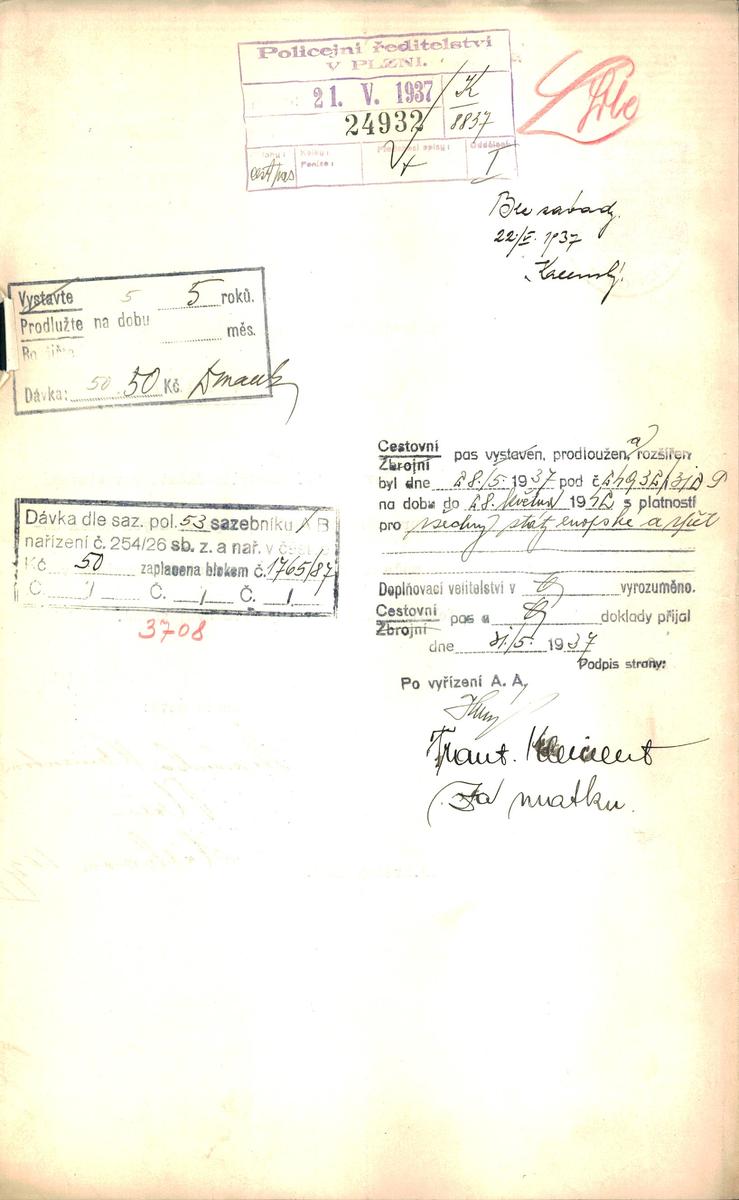 Policejní ředitelství
V PLZNI.
21. V. 1937 K
24932 8837
Přílohy: Kolky: Předchozí spisy: Oddělení:
Peníze: I
cest pas
Bez závady.
22/V. 1937
Vystavte 5 5 roků.
Prodlužte na dobu měs.
Dávka: 50 50 Kč
Cestovní
Zbrojní pas vystaven, prodloužen, a rozšířen
byl dne 28./5. 1937 pod č. 24932/
na dobu do 28. května 1942 s platností
pro všechny státy evropské a zpět
Dávka dle saz. pol. 53 sazebníku A B
nařízení č. 254/26 sb. z. a nař. v částce
Kč 50 zaplacena blokem č. 1765/87
Č. / Č. / Č. /
3708
Doplňovací velitelství v vyrozuměno.
Cestovní
Zbrojní pas a doklady přijal
dne 31./5. 1937
Podpis strany:
Po vyřízení A. A.
Frant. Kliment
Za matku.